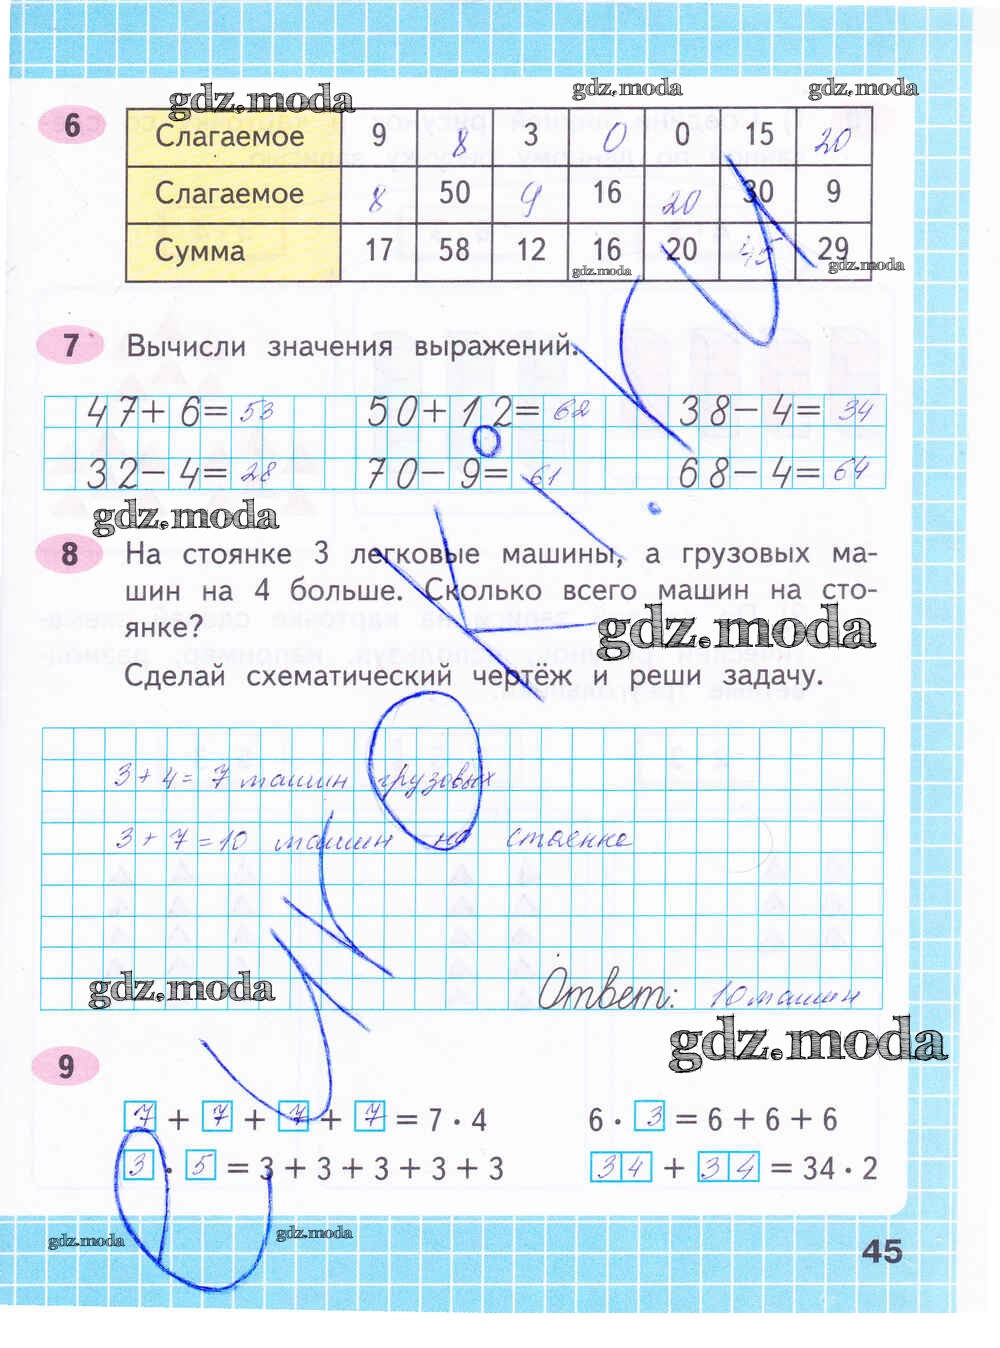 gdz.moda gdz.moda gdz.moda
6
Слагаемое 9 8 3 0 0 15 20
Слагаемое 8 50 9 16 20 30 9
Сумма 17 58 12 16 20 45 29
gdz.moda gdz.moda
7 Вычисли значения выражений.
47+6=53 50+12=62 38-4=34
32-4=28 70-9=61 68-4=64
gdz.moda
8 На стоянке 3 легковые машины, а грузовых ма-
шин на 4 больше. Сколько всего машин на сто-
янке?
gdz.moda
Сделай схематический чертёж и реши задачу.
3+4=7 машин грузовых
3+7=10 машин на стоянке
gdz.moda
Ответ: 10 машин
gdz.moda
9
7 + 7 + 7 + 7 = 7 · 4 6 · 3 = 6 + 6 + 6
3 · 5 = 3 + 3 + 3 + 3 + 3 34 + 34 = 34 · 2
gdz.moda gdz.moda
45